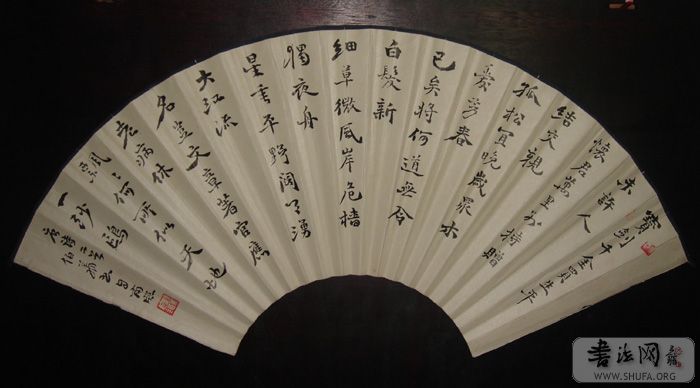 寶劍千金買生平
未許人
懷君萬里別持贈
結交親
孤松宜晚歲眾木
愛芳春
已矣將何道無令
白髮新
細草微風岸危檣
獨夜舟
星垂平野闊月湧
大江流
名豈文章著官應
老病休
飄飄何所似天地
一沙鷗
唐詩二首
書法网
WWW.SHUFA.ORG